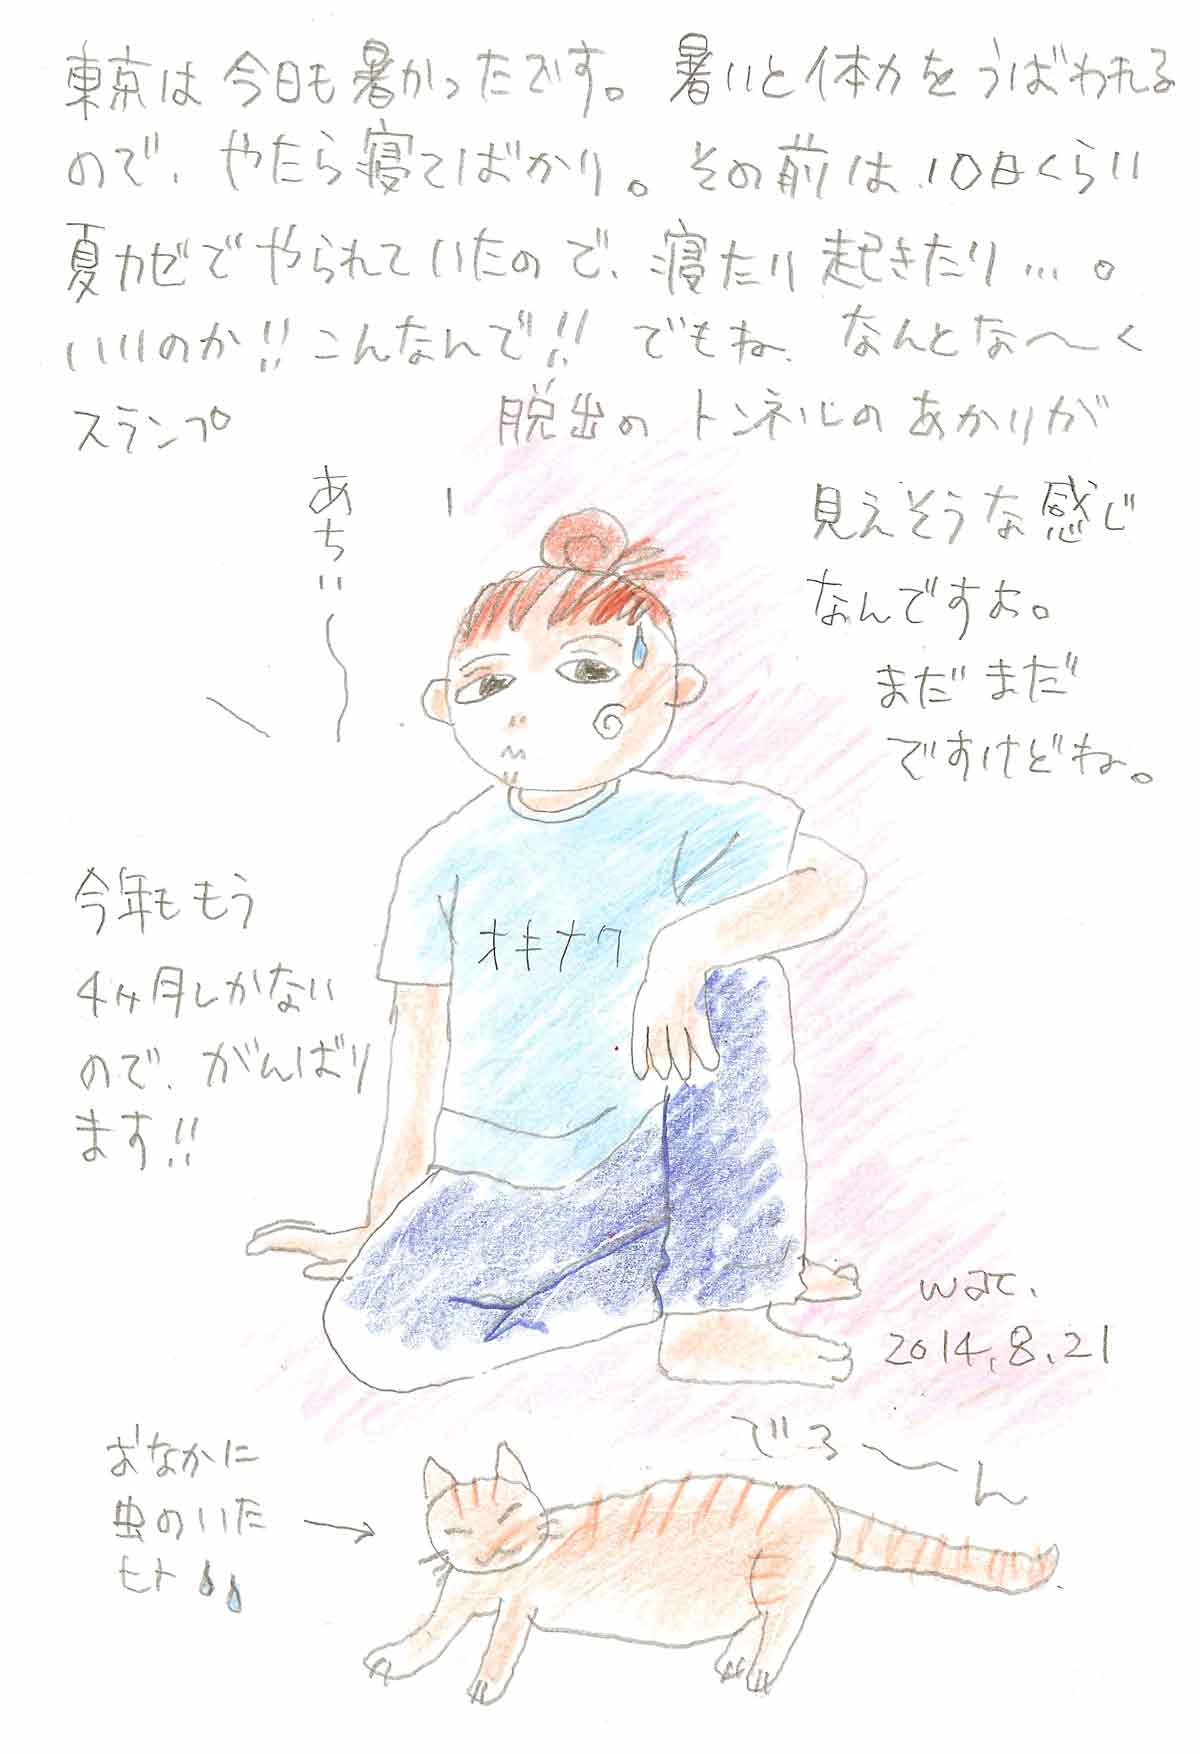 東京は今日も暑かったです。暑いと体力をうばわれる
ので、やたら寝てばかり。その前は、10日くらい
夏カゼでやられていたので、寝たり起きたり…。
いいのか!!こんなんで!!でもね、なんとな〜く
スランプ 脱出のトンネルのあかりが
見えそうな感じ
なんですよ。
まだまだ
ですけどね。
あちぃ〜
オキナワ
今年ももう
4ヶ月しかない
ので、がんばり
ます!!
wac.
2014.8.21
おなかに
虫のいた
モト
でろ〜ん